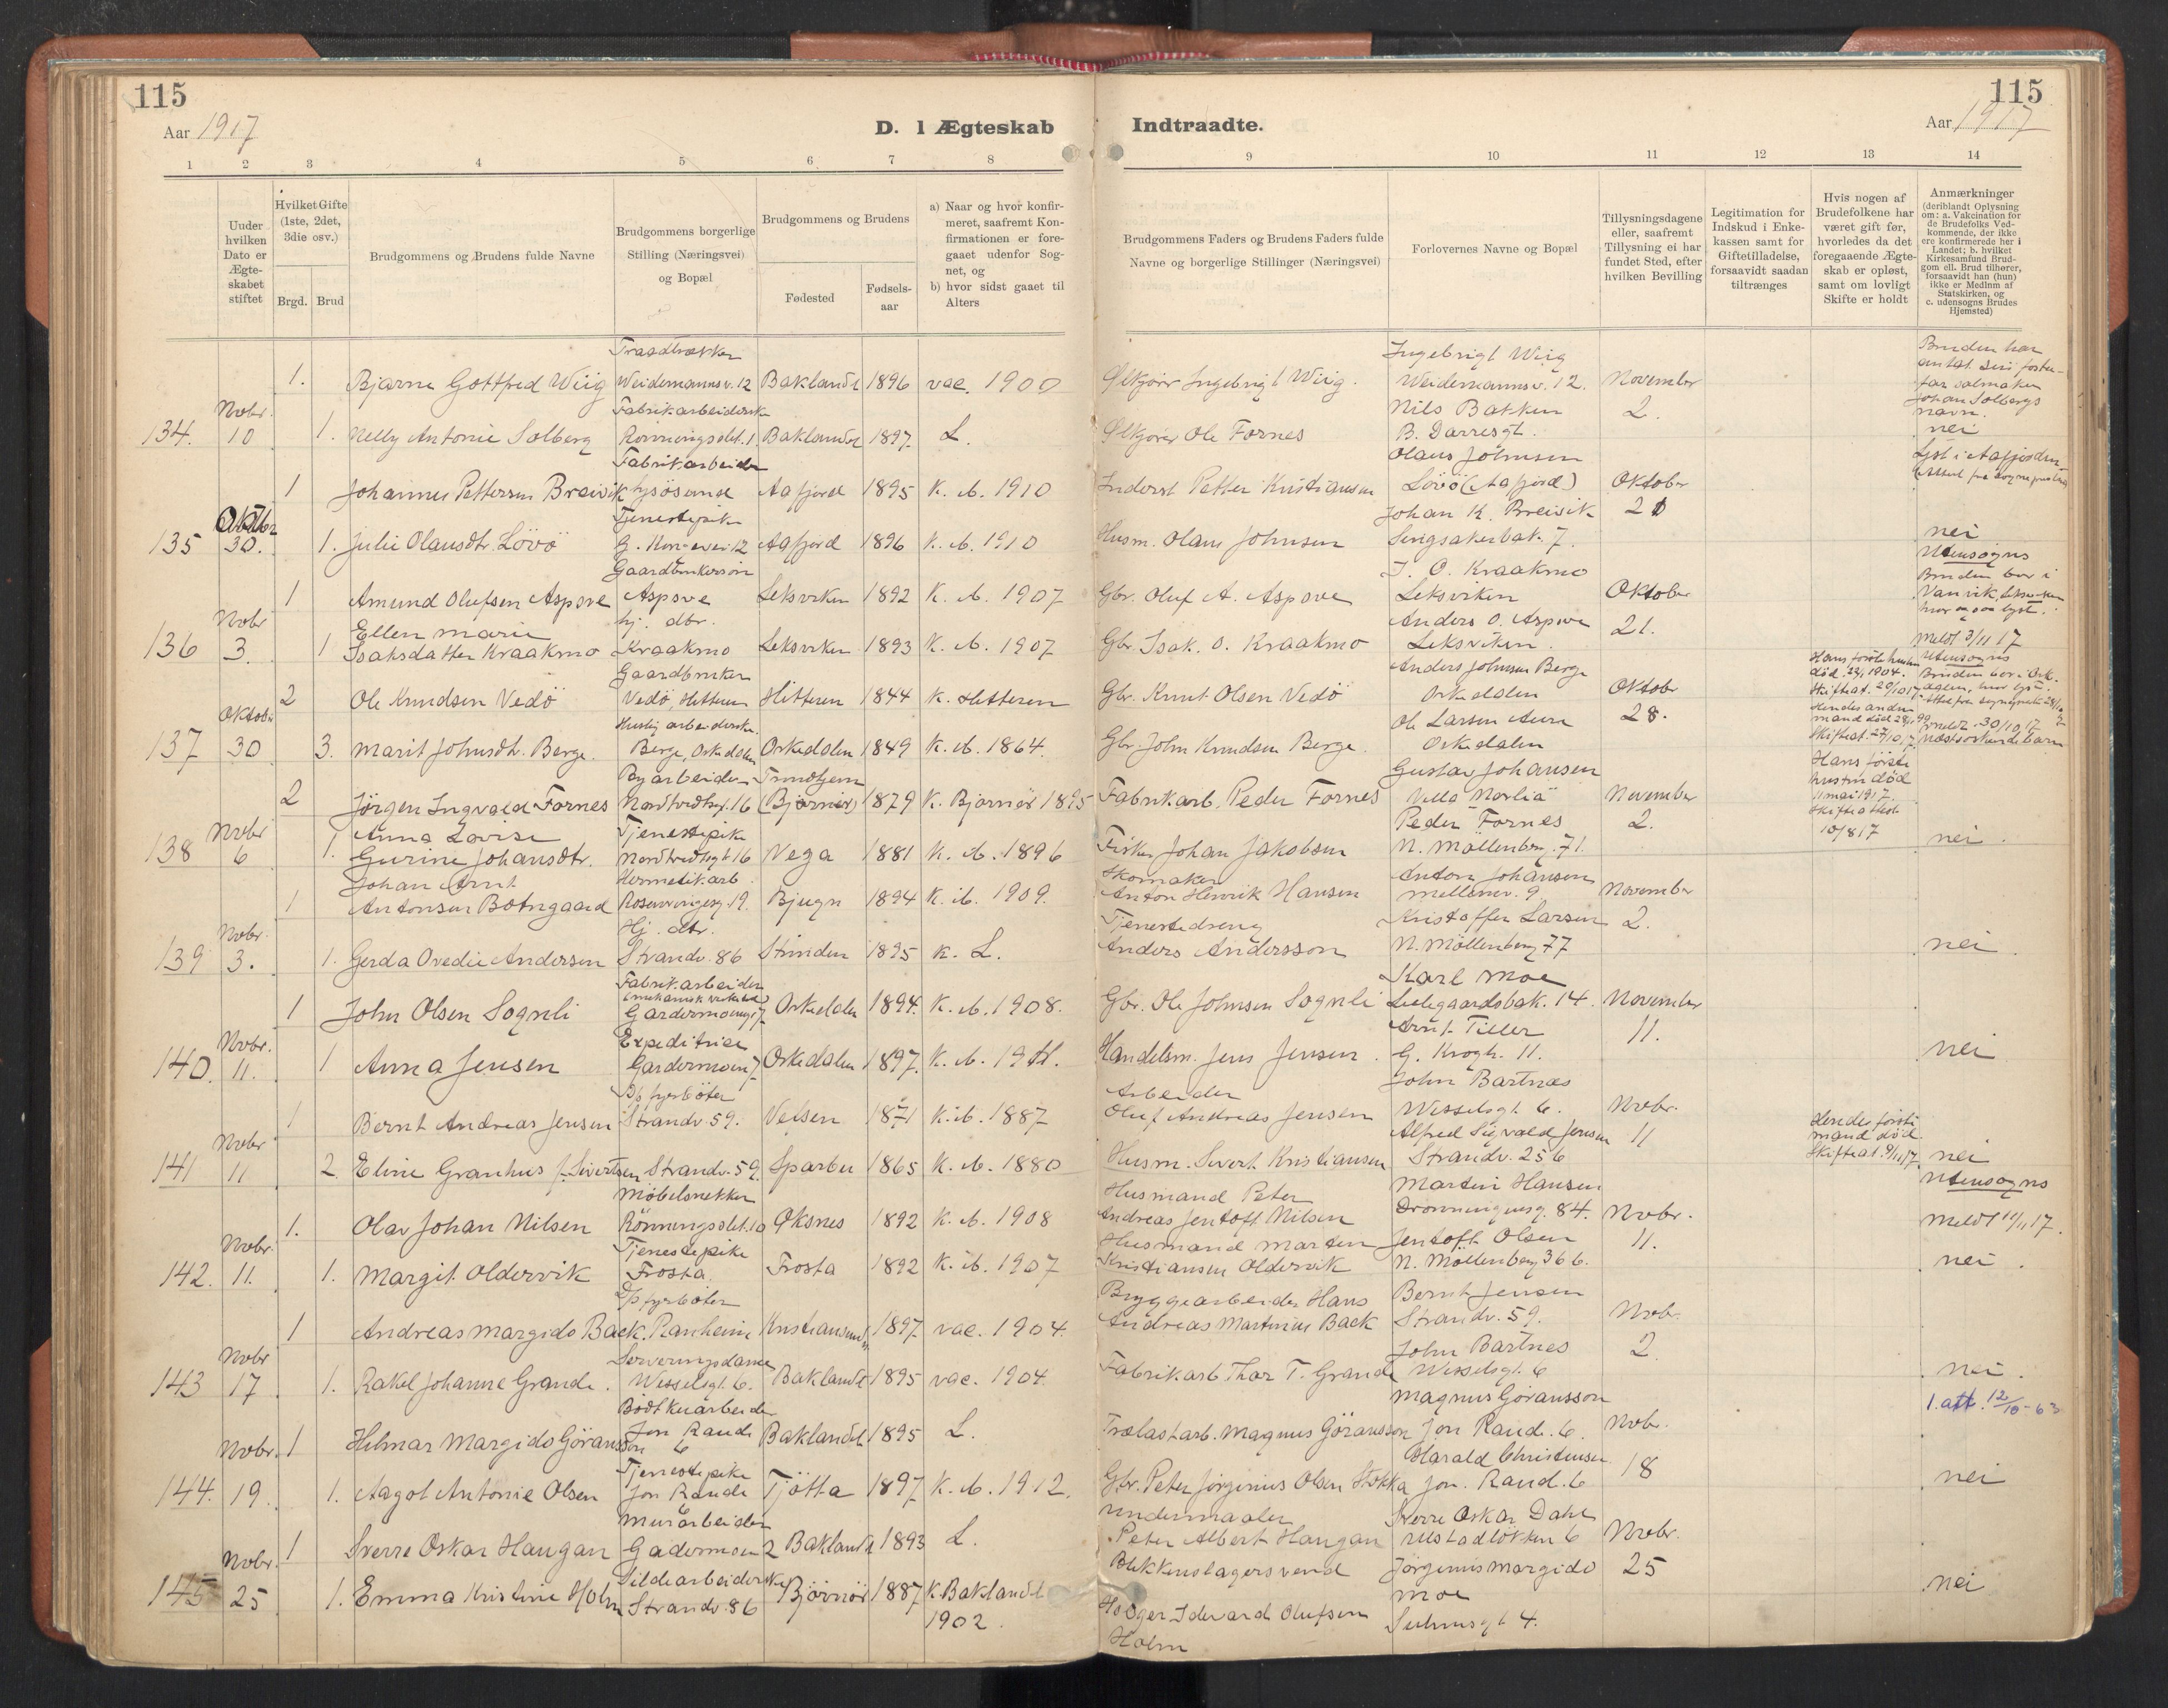 115
Aar 1917
D. 1 Ægteskab
1 2 3 4 5 6 7 8
Uuder hvilken Dato er Ægte-skabet stiftet
Hvilket Gifte (1ste, 2det, 3die osv.)
Brgd. Brud
Brudgommens og Brudens fulde Navne
Brudgommens borgerlige Stilling (Næringsvei) og Bopæl
Brudgommens og Brudens
Fødested
Fødsels-aar
a) Naar og hvor konfir-meret, saafremt Kon-firmationen er fore-gaaet udenfor Sog-net, og
b) hvor sidst gaaet til Alters
Traadtrækker
1. Bjarne Gottfred Wiig Weidemannsv. 12 Baklandet 1896 vac. 1900
Fabrikarbeiderske
134. Nvbr. 10 1. Nelly Antonie Solberg Rønningslet. 1 Baklandet 1897 L.
Fabrikarbeider
1 Johannes Pettersen Breivik Lysösund Aafjord 1895 K. ib. 1910
Tjenestepike
135 Oktbr 30. 1. Julie Olausdtr. Lövö Aafjord 1896 K. ib. 1910
Gaardbrukersøn
1 Amund Olufsen Aspove Aspove Leksviken 1892 K. ib. 1907
hj. dtr.
136 Nvbr 3. 1 Ellen Marie Isaksdatter Kraakmo Kraakmo Leksviken 1893 K. ib. 1907
Gaardbruker
2 Ole Knudsen Vedö Vedö, Hitteren Hitteren 1844 K. Hitteren
137 Oktober 30 3. Marit Johnsdtr. Berge. Berge, Orkedalen Orkedalen 1849 K. ib. 1864.
Byarbeider Trondhjem
2 Jörgen Ingvald Fornes Nordhvedtsg. 16 (Bjørnør) 1879 K. Bjørnör 1895
Tjenestepike
138 Nvbr 6 1. Anna Lovise Gurine Johansdtr. 16 Vega 1881 K. ib. 1896
Hermetikarb.
1 Johan Arnt Antonsen Botngaard Rosenvingesg. 19. Bjugn 1894 K. ib. 1909.
Hj. dtr.
139 Nvbr. 3. 1. Gerda Ovedie Andersen Strandv. 86 Strinden 1895 K. L.
Fabrikarbeider
1 John Olsen Sognli Gardermoensg 17 Orkedalen 1894. K. ib. 1908.
Expeditrise
140. Nvbr. 11. 1 Anna Jensen Gardermoen 7 Orkedalen 1897. K. ib. 1911.
D/s fyrböter
1 Bernt Andreas Jensen Strandv. 59. Velsen 1871 K. ib. 1887
141 Nvbr 11 2. Eline Granhus f. Sivertsen Strandv. 59. Sparbu 1865 K. ib. 1880
Møbelsnekker
1. Olav Johan Nilsen Rönningslet. 10 Øksnes 1892 K. ib. 1908
Tjenestepike
142. Nvbr. 11. 1. Margit Oldervik Frosta Frosta 1892 K. ib. 1907
D/s fyrböter
1 Andreas Margido Back. Ranheim Kristiansund 1897 vac. 1904.
Serveringsdame
143 Nvbr 17 1. Rakel Johanne Grande. Wesselsgt. 6. Baklandet 1895 vac. 1904.
Bödtkerarbeider
Nvbr. 1 Hilmar Margido Göransson Jon Raude 6 Baklandet 1895 L.
Tjenestepike
144. 19. 1. Aagot Antonie Olsen Jon Raude 6 Tjötta 1897 K. ib. 1912.
Murarbeider
1 Sverre Oskar Haugan Gadermoen 2 Baklandet 1893 L.
Sildearbeiderske
145 Nvbr. 25 1. Emma Kristine Holm Strandv. 86 Björnör 1887 K. Baklandet 1902.
115
Aar 1917
Indtraadte.
9 10 11 12 13 14
Brudgommens Faders og Brudens Faders fulde Navne og borgerlige Stillinger (Næringsvei)
Forlovernes Navne og Bopæl
Tillysningsdagene eller, saafremt Tillysning ei har fundet Sted, efter hvilken Bevilling
Legitimation for Indskud i Enke-kassen samt for Giftetilladelse, forsaavidt saadan tiltrænges
Hvis nogen af Brudefolkene har været gift før, hvorledes da det foregaaende Ægte-skab er opløst, samt om lovligt Skifte er holdt
Anmærkninger (deriblandt Oplysning om: a. Vakcination for de Brudefolks Ved-kommende, der ikke ere konfirmerede her i Landet; b. hvilket Kirkesamfund Brud-gom ell. Brud tilhører, forsaavidt han (hun) ikke er Medlnm af Statskirken, og c. udensogns Brudes Hjemsted)
Ølkjører Ingebrigt Wiig. Ingebrigt Wiig Weidemannsv. 12. November 2. Bruden har antat sin foster-far salmaker Johan Solbergs navn.
Ølkjører Ole Fornes Nils Bakken B. Darresgt. nei
Inderst Petter Kristiansen Olaus Johnsen Lövö (Aafjord) Oktober 21 Lyst i Aafjorden
Husm. Olaus Johnsen Johan K. Breivik Singsakerbak. 7. nei
Gbr. Oluf A. Aspove J. O. Kraakmo Leksviken Oktober 21. Utensogns Bruden bor i Vanvik, Leksviken hvor ogsaa lyst.
Gbr. Isak. O. Kraakmo Anders O. Aspove Leksviken. Meldt 3/11 17
Gbr. Knut Olsen Vedö Anders Johnsen Berge Orkedalen Oktobr 28. Utensogns Bruden bor i Ork-dalen, hvor lyst.
Gbr. John Knudsen Berge. Ole Larsen Aune Orkedalen meldt 30/10 17
Fabrikarb. Peder Fornes Gustav Johansen Villa "Norlia" November 2. Hans förste hustru död 11 mai 1917. Skifteattest 10/8 17 nei.
Fisker Johan Jakobsen Peder Fornes N. Möllenberg. 71.
Skomaker Anton Henrik Hansen Anton Johansen Mellemv. 9 November 2.
Tjenestedreng Anders Andersson Kristoffer Larsen N. Möllenberg 77 nei.
Gbr. Ole Johnsen Sognli Karl Moe Lillegaardsbak. 14. November 11.
Handelsm. Jens Jensen. Arnt Tiller G. Krogh. 11. nei
Arbeider Oluf Andreas Jensen John Bartnæs Wesselsgt. 6. Nvbr. 11
Husm. Sivert Kristiansen Alfred Sigvald Jensen Strandv. 25 b Hendes förste mand död. Skifteat. 9/11 17. nei
Husmand Peter Andreas Jentoft Nilsen Martin Hansen Dronningensg. 84. Nvbr. 11. Utensogns Meldt 11/11 17.
Husmand Marten Kristiansen Oldervik Jentoft Olsen N. Möllenberg 36 b. nei.
Bryggearbeider Hans Andreas Martinius Back Bernt Jensen Strandv. 59. Nvbr. 2
Fabrikarb. Thor T. Grande John Bartnes Wesselsgt. 6 nei.
Trælastarb. Magnus Göransson Magnus Göransson Jon Raude. 6. Nvbr. 18 1. att. 12/10-63
Gbr. Peter Jörginius Olsen Stokka Harald Christensen Jon. Raud. 6 nei
Undermaaler Peter Albert Haugan Sverre Oskar Dahl Ulstadløkken 6 Nvbr. 25
Blikkenslagersvend Holger Edevard Olufsen Holm Jörginus Margido Moe Suhmsgt 4. nei